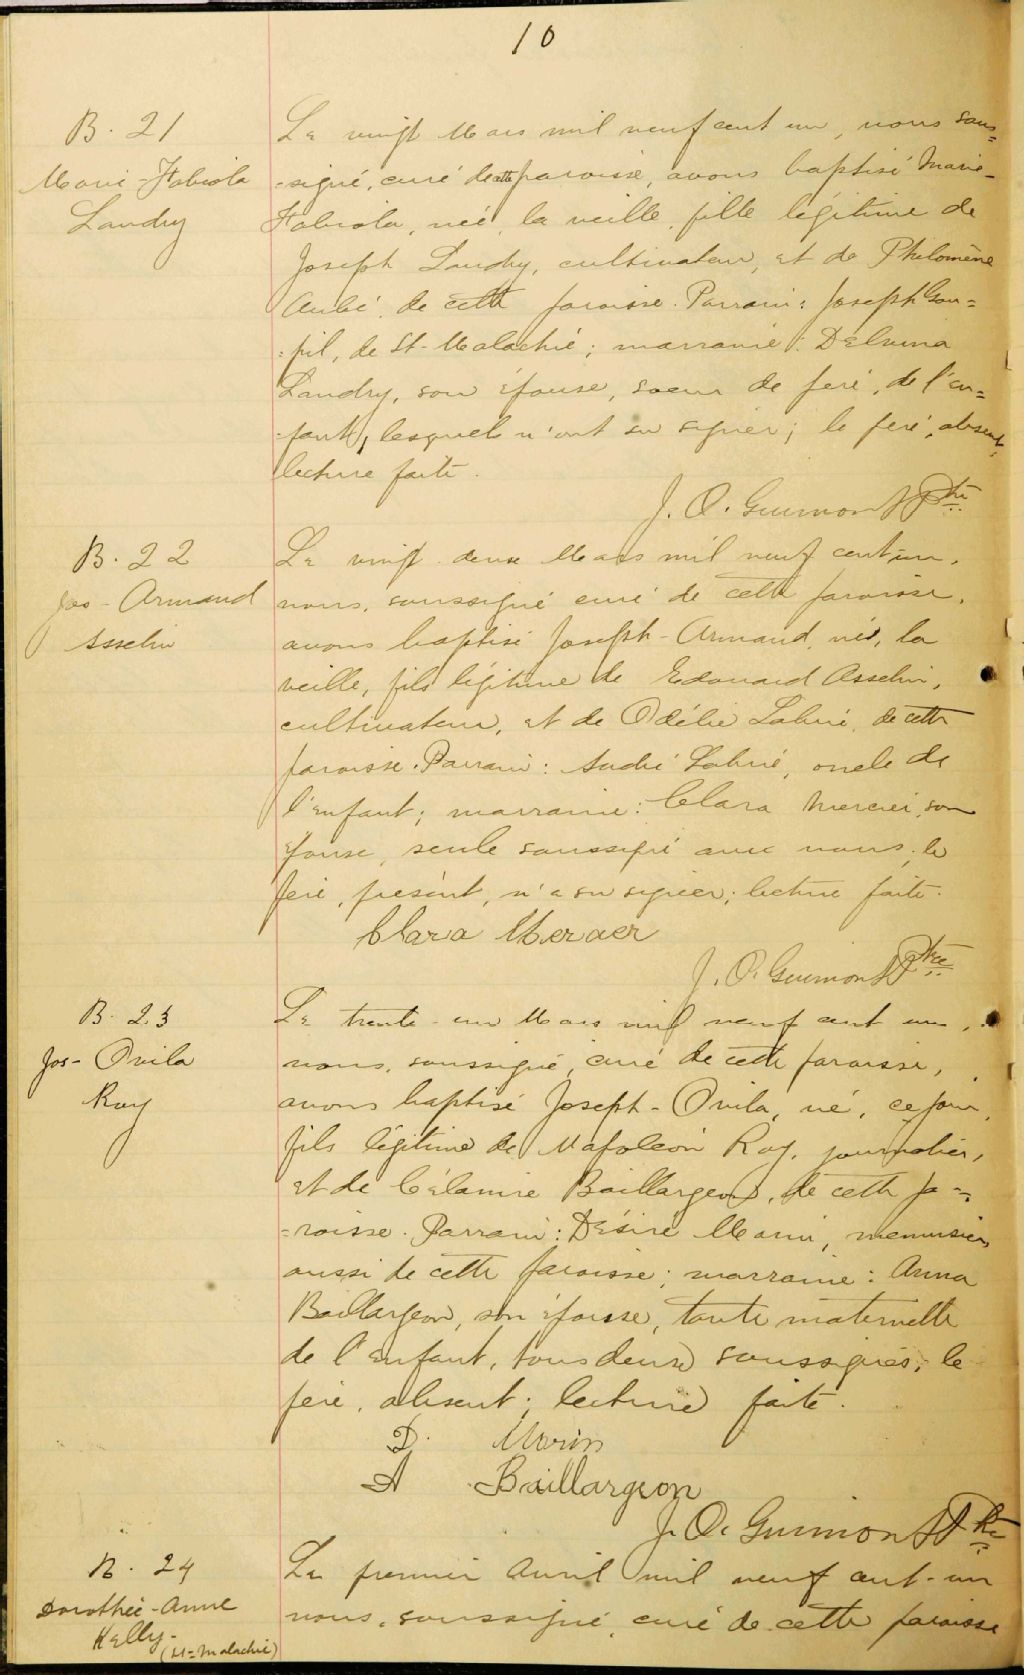 10
B. 21
Marie-Fabiola
Landry
Le vingt Mars mil neuf cent un, nous sous=
=signé, curé de cette paroisse, avons baptisé Marie-
Fabiola, née, la veille, fille légitime de
Joseph Landry, cultivateur, et de Philomène
Aubé, de cette paroisse. Parrain: Joseph Gou=
=pil, de St-Malachie; marraine: Delvina
Landry, son épouse, soeur de père, de l'en=
=fant, lesquels n'ont su signer; le père, absent,
lecture faite.
J. O. Guimont Ptre
B. 22
Jos-Armand
Asselin
Le vingt-deux Mars mil neuf cent-un,
nous, soussigné curé de cette paroisse,
avons baptisé Joseph-Armand, né, la
veille, fils légitime de Edouard Asselin,
cultivateur, et de Odélie Labrie, de cette
paroisse. Parrain: André Labrie, oncle de
l'enfant; marraine: Clara Mercier, son
épouse, seule soussigné avec nous; le
père, présent, n'a su signer; lecture faite.
Clara Mercier
J. O. Guimont Ptre
B. 23
Jos-Ovila
Roy
Le trente-un Mars mil neuf cent un,
nous, soussigné, curé de cette paroisse,
avons baptisé Joseph-Ovila, né, ce jour,
fils légitime de Napoléon Roy, journalier,
et de Célanire Baillargeon, de cette pa=
=roisse. Parrain: Désiré Morin, menuisier,
aussi de cette paroisse; marraine: Anna
Baillargeon, son épouse, tante maternelle
de l'enfant, tous deux soussignés; le
père, absent; lecture faite.
D. Morin
A Baillargeon
J. O. Guimont Ptre
B. 24
Dorothée-Anne
Kelly-
(St-Malachie)
Le premier Avril mil neuf cent-un
nous, soussigné, curé de cette paroisse